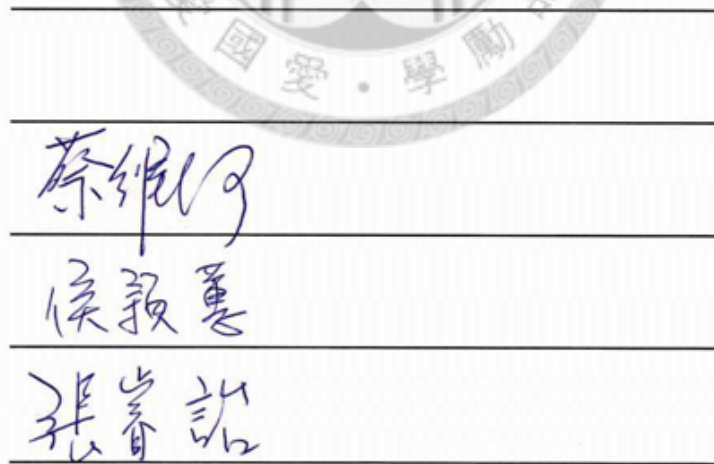 國愛・學勵
蔡維河
侯穎蕙
張睿詒